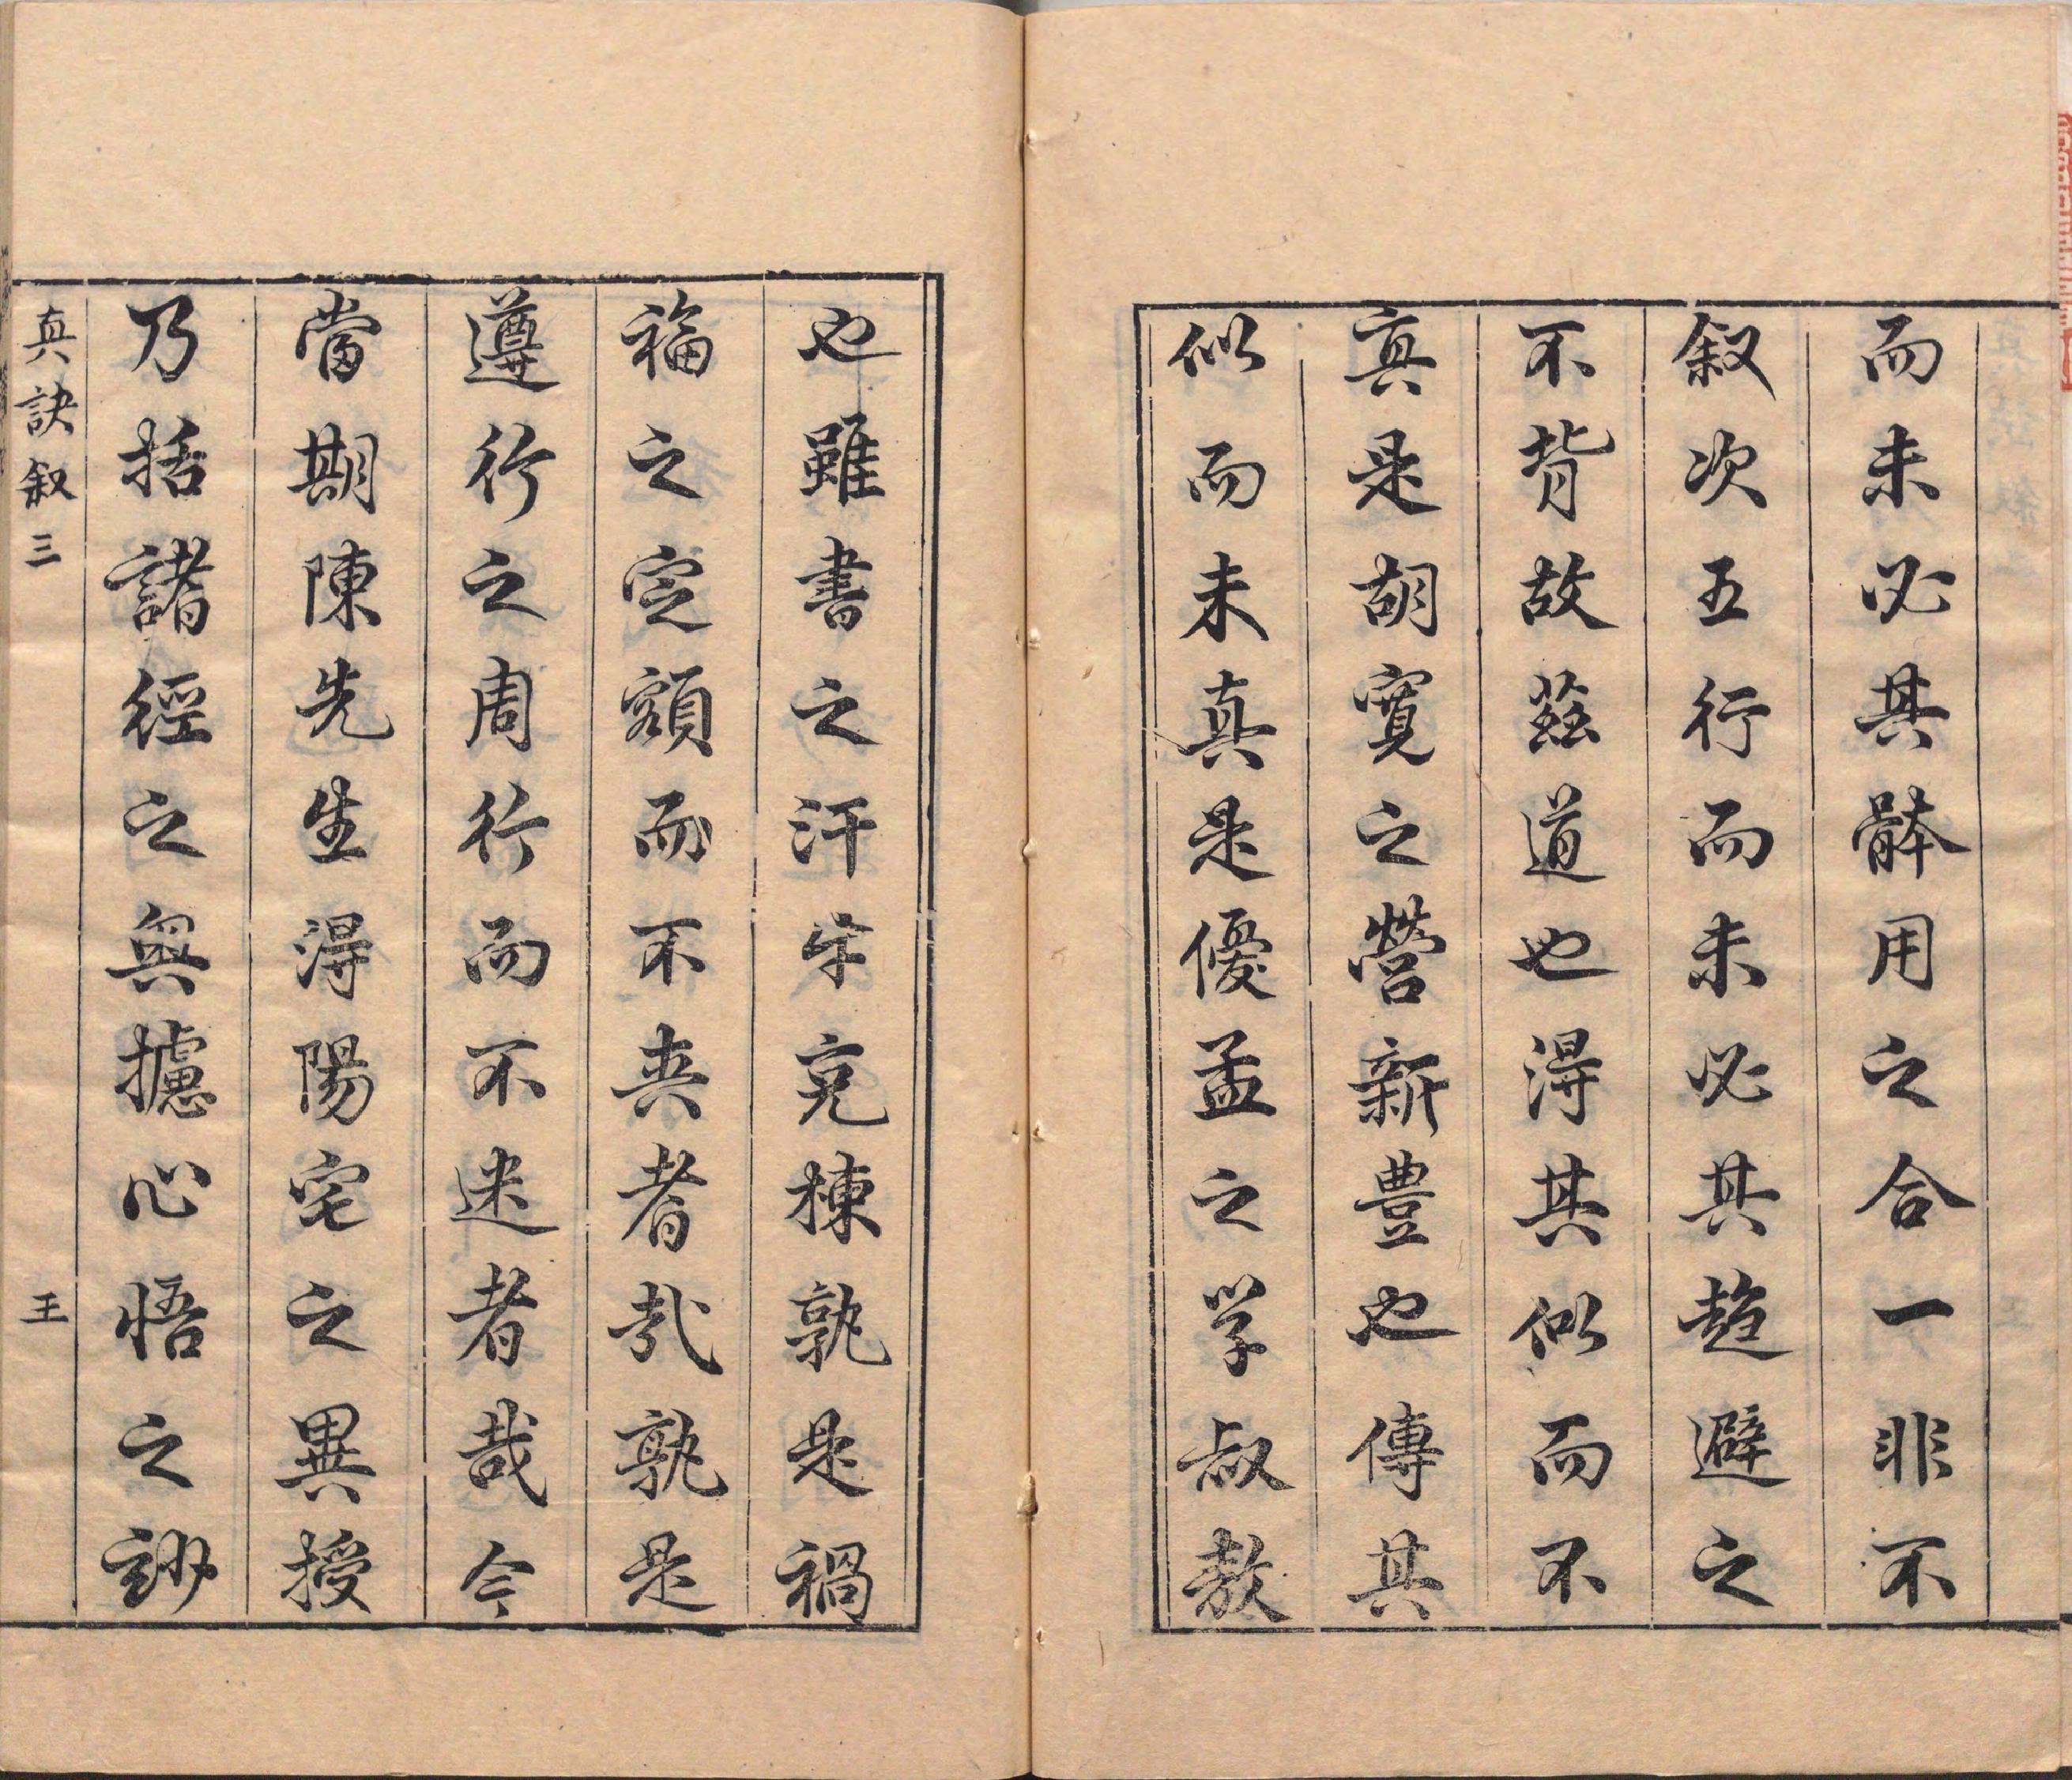 而未必其骵用之合一非不
叙次五行而未必其趋避之
不背故兹道也淂其似而不
真是胡寬之營新豊也傳其
似而未真是優孟之学叔敖
也雖書之汗牛充棟孰是禍
福之定額而不爽者哉孰是
遵行之周行而不迷者哉今
當期陳先生淂陽宅之異授
乃括諸經之奥攄心悟之玅
真訣叙三
王